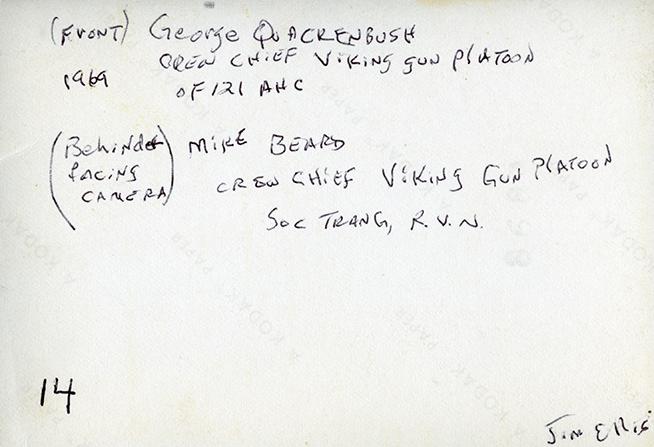 (FRONT) George QUACKENBUSH
CREW CHIEF ViKiNG GUN PlATOON
1969 OF 121 AHC
(Behind facing CAMERA) MIKE BEARD
CREW CHIEF ViKiNG GUN PlATOON
Soc TRANG, R.V.N.
14
Jim Ellis
A KODAK PAPER